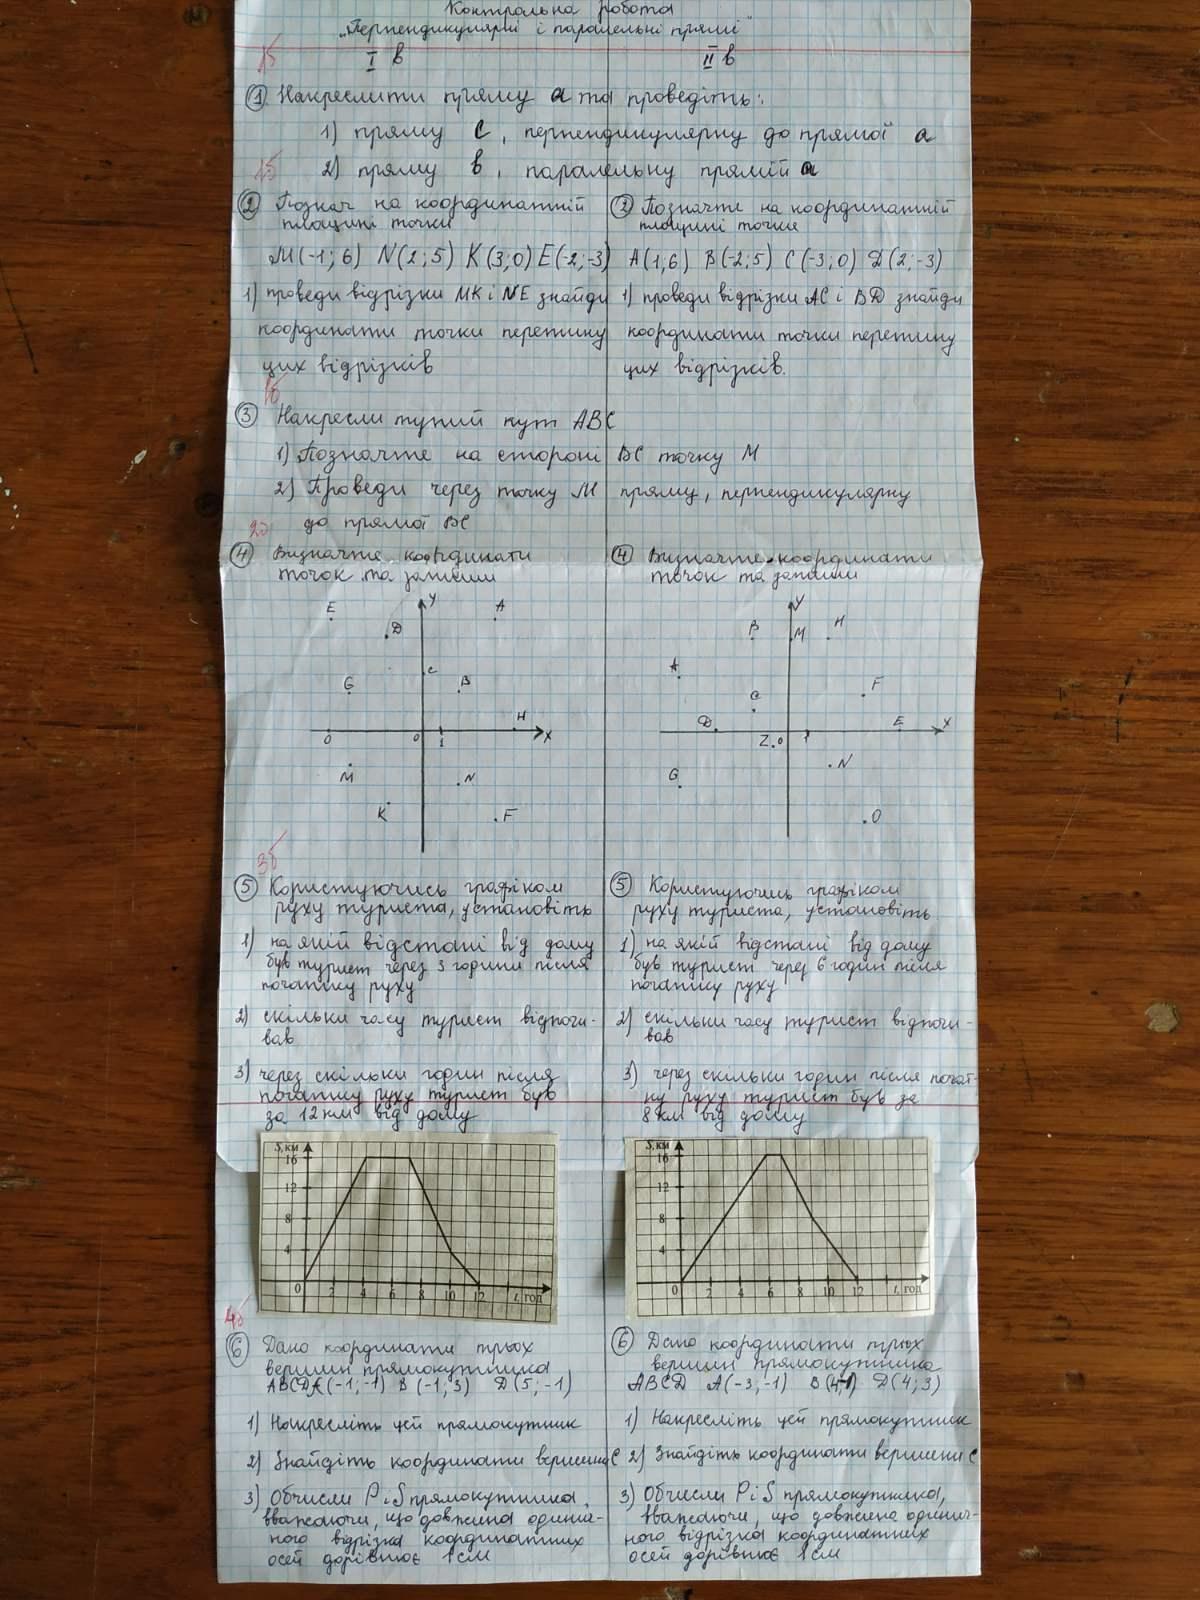 Контрольна робота
"Перпендикулярні і паралельні прямі"
I в
II в
1б
① Накреслити пряму a та проведіть:
1) пряму c, перпендикулярну до прямої a
2) пряму в, паралельну прямій a
1б
② Познач на координатній
площині точки
M(-1; 6) N(2; 5) K(3; 0) E(-2; -3)
1) проведи відрізки MK і NE знайди
координати точки перетину
цих відрізків
② Позначте на координатній
площині точки
A(1; 6) B(-2; 5) C(-3; 0) D(2; -3)
1) проведи відрізки AC і BD знайди
координати точки перетину
цих відрізків.
1б
③ Накресли тупий кут ABC
1) Позначте на стороні BC точку M
2) Проведи через точку M пряму, перпендикулярну
до прямої BC
2б
④ Визначте координати
точок та запиши
E D Y A
C
G B
H
0 0 1 X
M N
K F
④ Визначте координати
точок та запиши
Y
B M H
A
C F
D E X
Z 0 1
G N
O
3б
⑤ Користуючись графіком
руху туриста, установіть
1) на якій відстані від дому
був турист через 3 години після
початку руху
2) скільки часу турист відпочи-
вав
3) через скільки годин після
початку руху турист був
за 12 км від дому
S, км
16
12
8
4
0 2 4 6 8 10 12 t, год
⑤ Користуючись графіком
руху туриста, установіть
1) на якій відстані від дому
був турист через 6 годин після
початку руху
2) скільки часу турист відпочи-
вав
3) через скільки годин після почат-
ку руху турист був за
8 км від дому
S, км
16
12
8
4
0 2 4 6 8 10 12 t, год
4б
⑥ Дано координати трьох
вершин прямокутника
ABCD A(-1; -1) B(-1; 3) D(5; -1)
1) Накресліть цей прямокутник
2) Знайдіть координати вершини C
3) Обчисли P і S прямокутника,
вважаючи, що довжина одинич-
ного відрізка координатних
осей дорівнює 1 см
⑥ Дано координати трьох
вершин прямокутника
ABCD A(-3; -1) B(4; -1) D(4; 3)
1) Накресліть цей прямокутник
2) Знайдіть координати вершини C
3) Обчисли P і S прямокутника,
вважаючи, що довжина одинич-
ного відрізка координатних
осей дорівнює 1 см